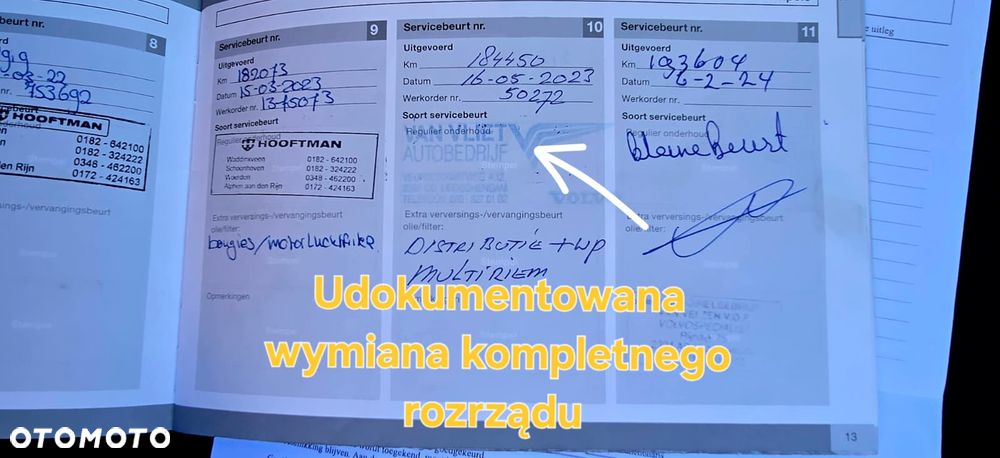 uitleg
beurt nr.
8
-03-22
753692
HOOFTMAN
0182 - 642100
0182 - 324222
0348 - 462200
0172 - 424163
den Rijn
Servicebeurt nr.
9
Uitgevoerd
Km 182073
Datum 15-03-2023
Werkorder nr. 1375073
Soort servicebeurt
HOOFTMAN
Waddinxveen 0182 - 642100
Schoonhoven 0182 - 324222
Woerden 0348 - 462200
Alphen aan den Rijn 0172 - 424163
Extra verversings-/vervangingsbeurt
olie/filter:
bougies/motorluchtfilter
Opmerkingen
Servicebeurt nr.
10
Uitgevoerd
Km 184450
Datum 16-05-2023
Werkorder nr. 50272
Soort servicebeurt
Regulier onderhoud
VAN VLIET
AUTOBEDRIJF
VOLVO
Extra verversings-/vervangingsbeurt
olie/filter:
DISTRIBUTIE + WP
MULTIRIEM
Servicebeurt nr.
11
Uitgevoerd
Km 193604
Datum 6-2-24
Werkorder nr.
Soort servicebeurt
Regulier onderhoud
kleine Beurt
Extra verversings-/vervangingsbeurt
olie/filter:
13
Udokumentowana
wymiana kompletnego
rozrządu
OTOMOTO